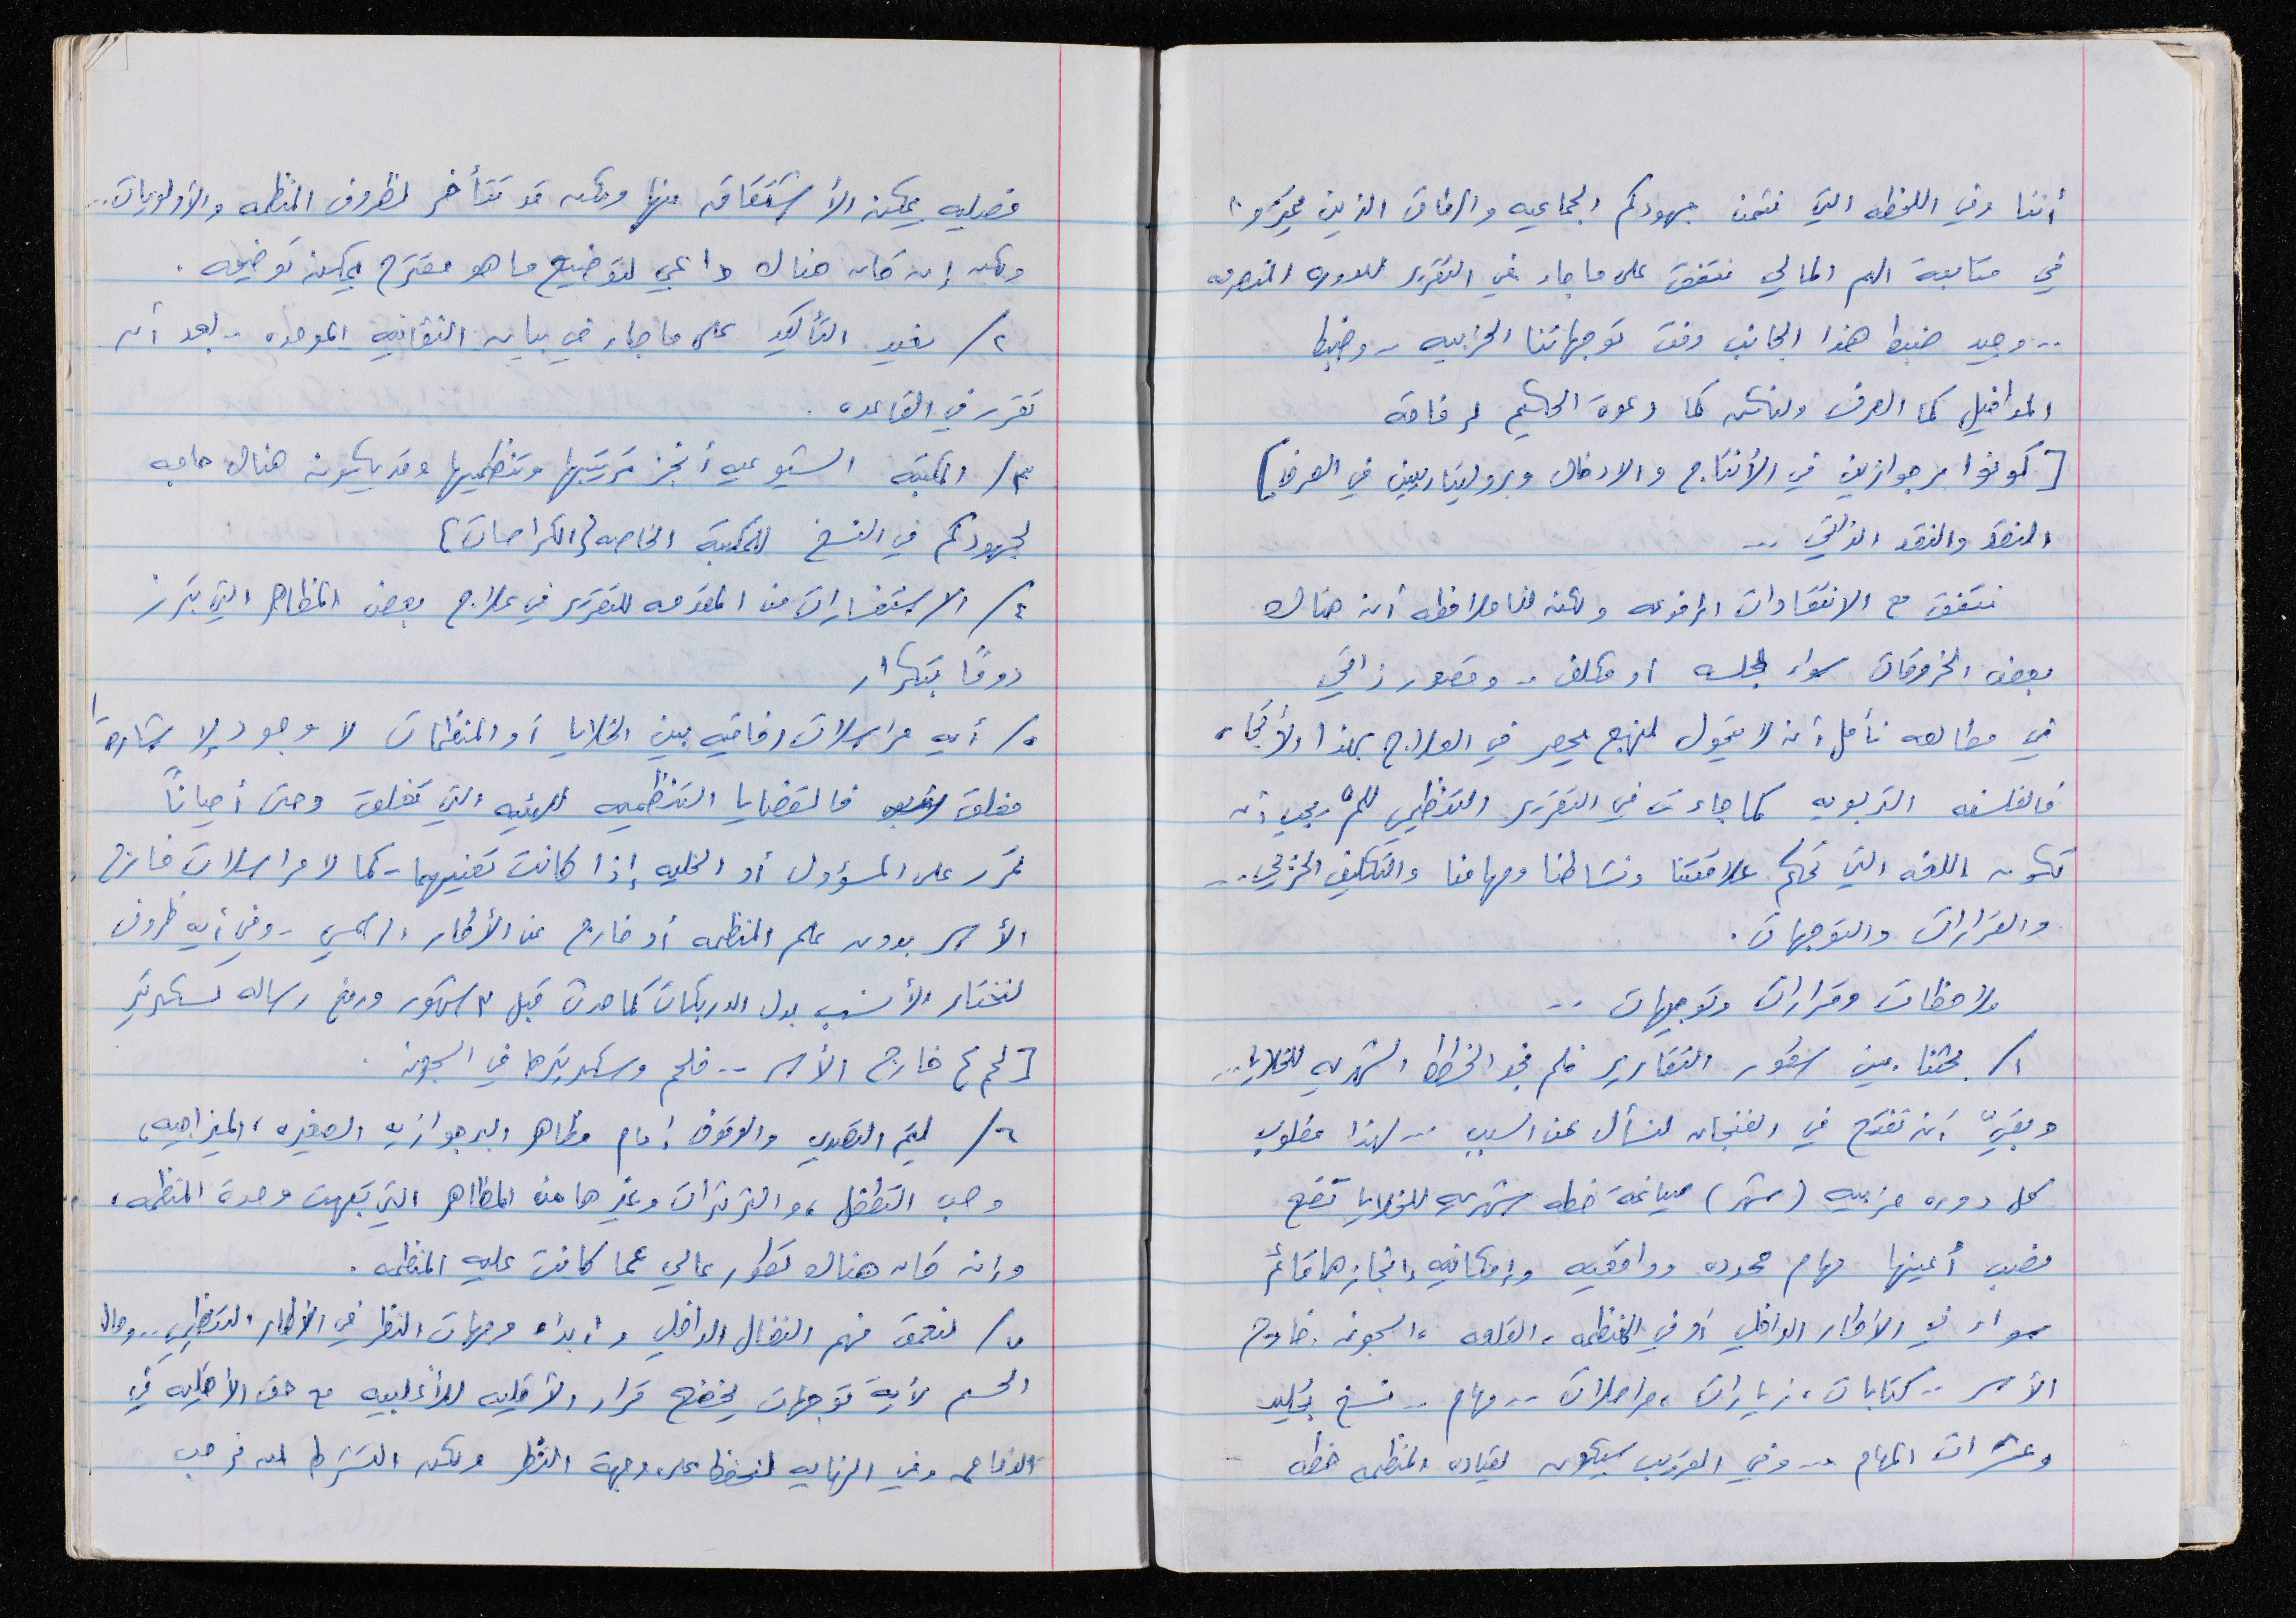 أننا وفي اللحظه التي نثمن جهودكم الجماعيه والرفاق الذين تميزوا
في متابعة الهم المالي نتفق على ما جاء في التقرير للدوره المنصرمه
.. وجيد ضبط هذا الجانب وفق توجهاتنا الحزبيه .. وضبط
المداخيل كما الصرف ولنكن كما دعوة الحكيم لرفاقه
[كونوا برجوازيين في الأنتاج والادخال وبروليتاريين في الصرف]
النقد والنقد الذاتي ...
نتفق مع الانتقادات المرفوعه ولكن لنا ملاحظه أن هناك
بعض الخروقات سواء لجلسه او مكلف .. وقصور ذاتي
في مطالعه نأمل أن لا يتحول لمنهج يحصر في العلاج بهذا الأتجاه
فالفلسفه التربويه كما جاءت في التقرير التنظيمي للم° يجب أن
تكون اللغه التي تحكم علاقتنا ونشاطنا ومهامنا والتكليف الحزبي ..
والقرارات والتوجهات .
ملاحظات وقرارات وتوجيهات ..
١/ بحثنا بين سطور التقارير فلم نجد الخطط الشهريه للخلايا ...
وبقيّ أن نفتح في الفنجان لنسأل عن السبب .. لهذا مطلوب
كل دوره حزبيه (شهر) صياغة خطه شهريه للخلايا تضع
نصب أعينها مهام محدده وواقعيه وإمكانيه إنجازها قائم
سواء في الأطار الداخلي أو في المنظمه، القلعه، السجون. خارج
الأسر .. كتابات، زيارات، مراسلات .. مهام .. نسخ تجليد
وعشرات المهام .. وفي القريب سيكون لقيادة المنظمه خطه
فصليه يمكن الأشتقاق منها ولكن قد تتأخر لظروف المنظمه والأولويات ..
ولكن إن كان هناك داعي لتوضيح ما هو مقترح يمكن توضيحه .
٢/ نعيد التأكيد على ما جاء في بيان الثقافيه الموحده .. بعد أن
تقرر في القاعده .
٣/ المكتبه الشيوعيه أنجز ترتيبها وتنظيمها وقد يكون هناك حاجه
لجهودكم في النسخ للمكتبة الخاصه {الكراسات}
٤/ الاستفسارات من المقدمه للتقرير في علاج بعض المظاهر التي تبرز
دوماً بتكرار
٥/ أيه مراسلات رفاقيه بين الخلايا أو المنظمات لا وجود لإستشارة
مغلق فالقضايا التنظيميه للهيئه التي تغلق وحتى أحياناً
تمرر على المسؤول أو الخليه إذا كانت تعنيهما - كما لا مراسلات خارج
الأسر بدون علم المنظمه أو خارج عن الأطار الرسمي .. وفي أيه ظروف
لنختار الأنسب بدل الدربكات كما حدث قبل ٣ شهور ورفع رساله لسكرتير
[لجم ع خارج الأسر .. فلجم وسكرتيرها في السجون .
٦/ ليتم التصدي والوقوف أمام مظاهر البرجوازيه الصغيره، المزاجيه،
وحب التطفل، والثرثرات وغيرها من المظاهر التي تبهت وحدة المنظمه،
وإن كان هناك تطور عالي عما كانت عليه المنظمه .
٧/ لنعمق فهم النضال الداخلي وأبداء وجهات النظر في الأطار التنظيمي ... وحال
الحسم لأية توجهات يخضع قرار الأقليه للأغلبيه مع حق الأقليه في
القناعه وفي النهايه لنحفظ على وجهة النظر ولكن الشرط أن